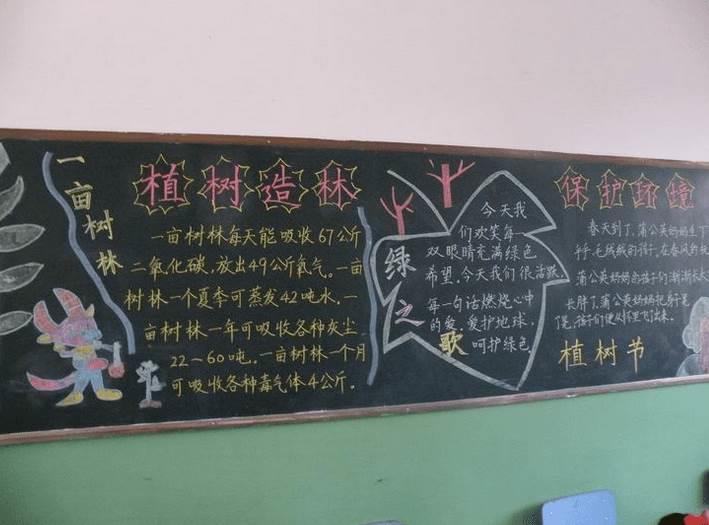 一亩树林
植树造林
一亩树林每天能吸收67公斤
二氧化碳,放出49公斤氧气。一亩
树林一个夏季可蒸发42吨水,一
亩树林一年可吸收各种灰尘
22—60吨。一亩树林一个月
可吸收各种毒气体4公斤。
绿之歌
今天我
们欢笑每一
双眼睛充满绿色
希望。今天我们很活跃,
每一句话燃烧心中
的爱,爱护地球,
呵护绿色
保护环境
春天到了,蒲公英妈妈生下
毛绒绒的孩子,在春风的
蒲公英妈妈的孩子们渐渐长大
长胖了,蒲公英妈妈
了,孩子们便从怀里飞出来。
植树节